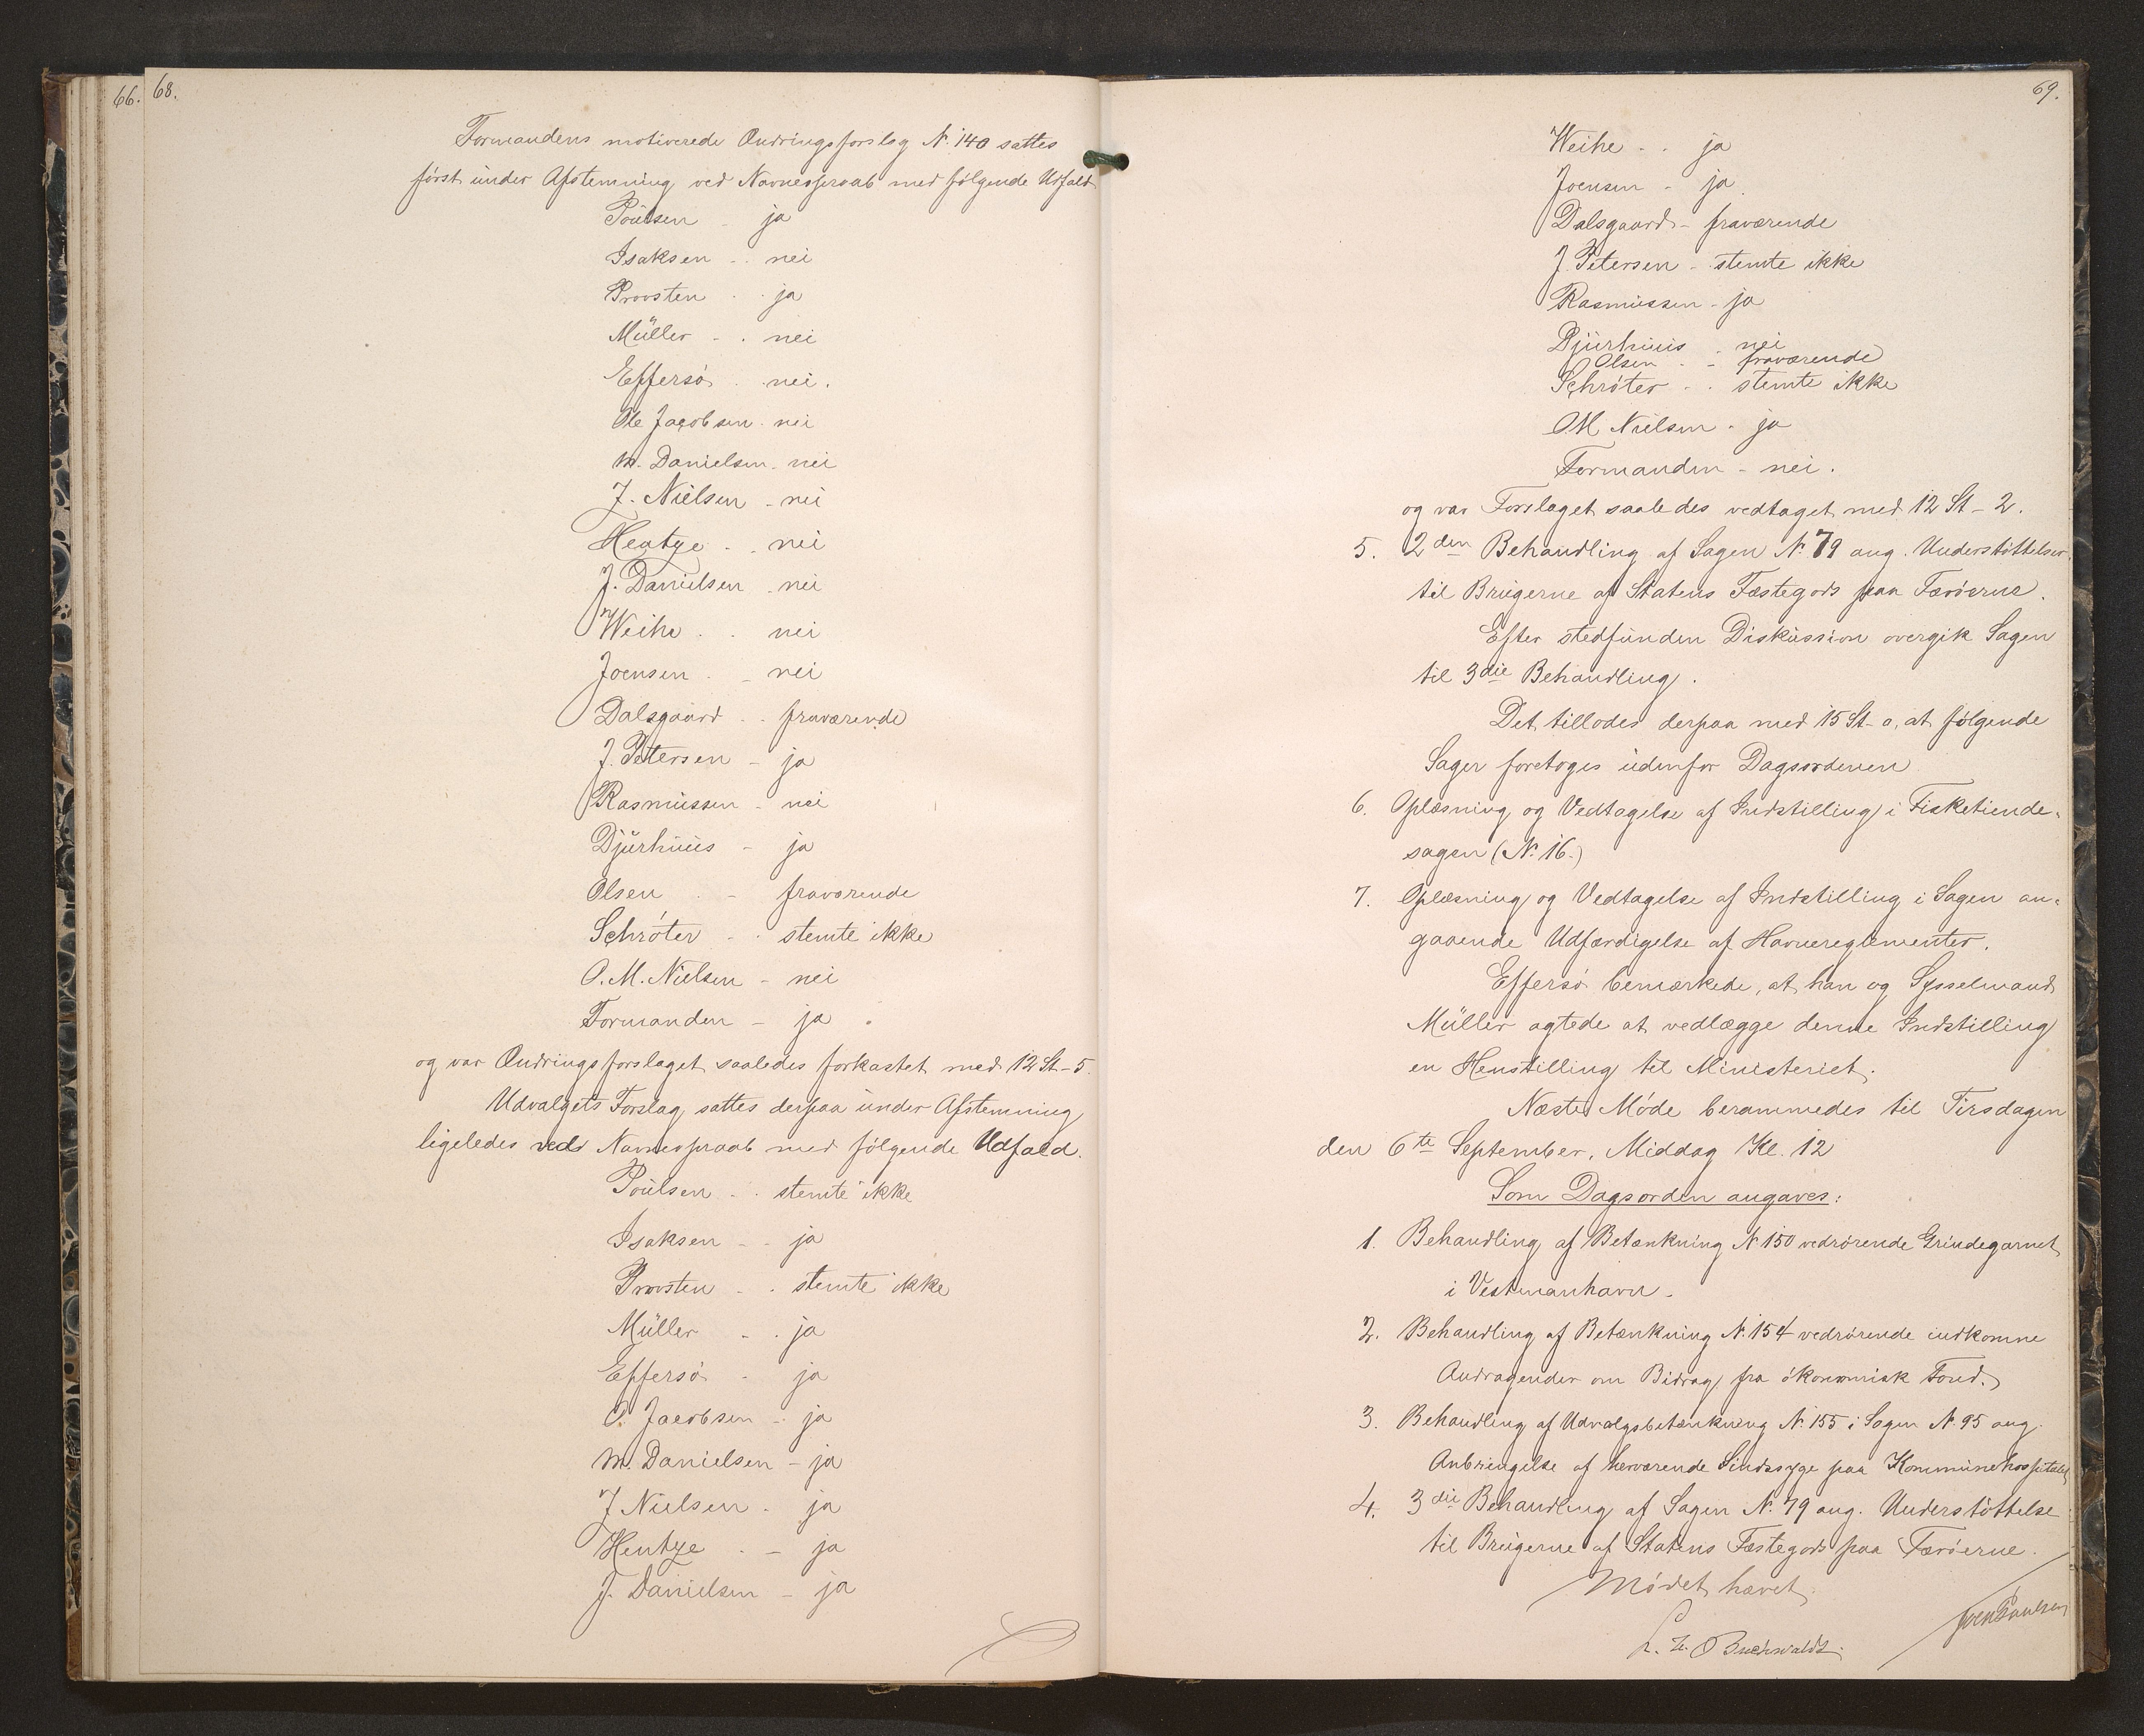 66. 68.
Formandens motiverede Ændringsforslag N. 140 sattes
først under Afstemning ved Navneopraab med følgende Udfald
Poulsen - ja
Isaksen - - nei
Provsten - - ja
Müller - - nei
Effersø - nei.
Ole Jacobsen - nei
M. Danielsen - nei
J. Nielsen - nei
Hentze - - nei
J. Danielsen - nei
Weihe - - nei
Joensen - - nei
Dalsgaard - - fraværende
J. Petersen - ja
Rasmussen - nei
Djurhuus - ja
Olsen - - fraværende
Schrøter - - stemte ikke
O. M. Nielsen - nei
Formanden - ja.
og var Ændringsforslaget saaledes forkastet med 12 St - 5.
Udvalgets Forslag sattes derpaa under Afstemning
ligeledes ved Navneopraab med følgende Udfald.
Poulsen - - stemte ikke
Isaksen - - ja
Provsten - - stemte ikke
Müller - - ja
Effersø - ja
O. Jacobsen - ja
M. Danielsen - ja
J Nielsen - ja
Hentze - - ja
J. Danielsen - ja
69.
Weihe - - ja
Joensen - ja
Dalsgaard - fraværende
J. Petersen - stemte ikke
Rasmussen - ja
Djurhuus - nei
Olsen - - fraværende
Schrøter - - stemte ikke
O.M Nielsen - ja
Formanden - nei.
og var Forslaget saaledes vedtaget med 12 St - 2.
5. 2den Behandling af Sagen N. 79 ang. Understøttelser
til Brugerne af Statens Fæstegods paa Færøerne.
Efter stedfunden Diskussion overgik Sagen
til 3die Behandling.
Det tillodes derpaa med 15 St - 0, at følgende
Sager foretoges udenfor Dagsordenen
6. Oplæsning og Vedtagelse af Indstilling i Fisketiende-
sagen (N. 16.)
7. Oplæsning og Vedtagelse af Indstilling i Sagen an-
gaaende Udfærdigelse af Havnereglementer.
Effersø bemærkede, at han og Sysselmand
Müller agtede at vedlægge denne Indstilling
en Henstilling til Ministeriet.
Næste Møde berammedes til Tirsdagen
den 6te September, Middag Kl. 12
Som Dagsorden angaves:
1. Behandling af Betænkning N. 150 vedrørende Grindegarnet
i Vestmanhavn.
2. Behandling af Betænkning N. 154 vedrørende indkomne
Andragender om Bidrag fra økonomisk Fond.
3. Behandling af Udvalgsbetænkning N. 155 i Sagen N. 95 ang.
Anbringelse af herværende Sindssyge paa Kommunehospitalet
4. 3die Behandling af Sagen N. 79 ang. Understøttelse
til Brugerne af Statens Fæstegods paa Færøerne.
Mødet hævet.
Buchwaldt.